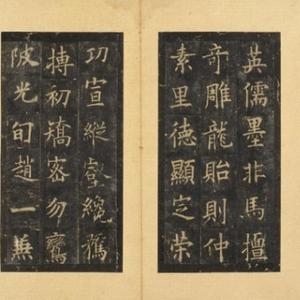 英儒墨非馬擅
奇雕龍貽則仲
素里德顯定荣
功宣縱壑纔鶱
搏初矯密勿鸞
陂光旬趙一無